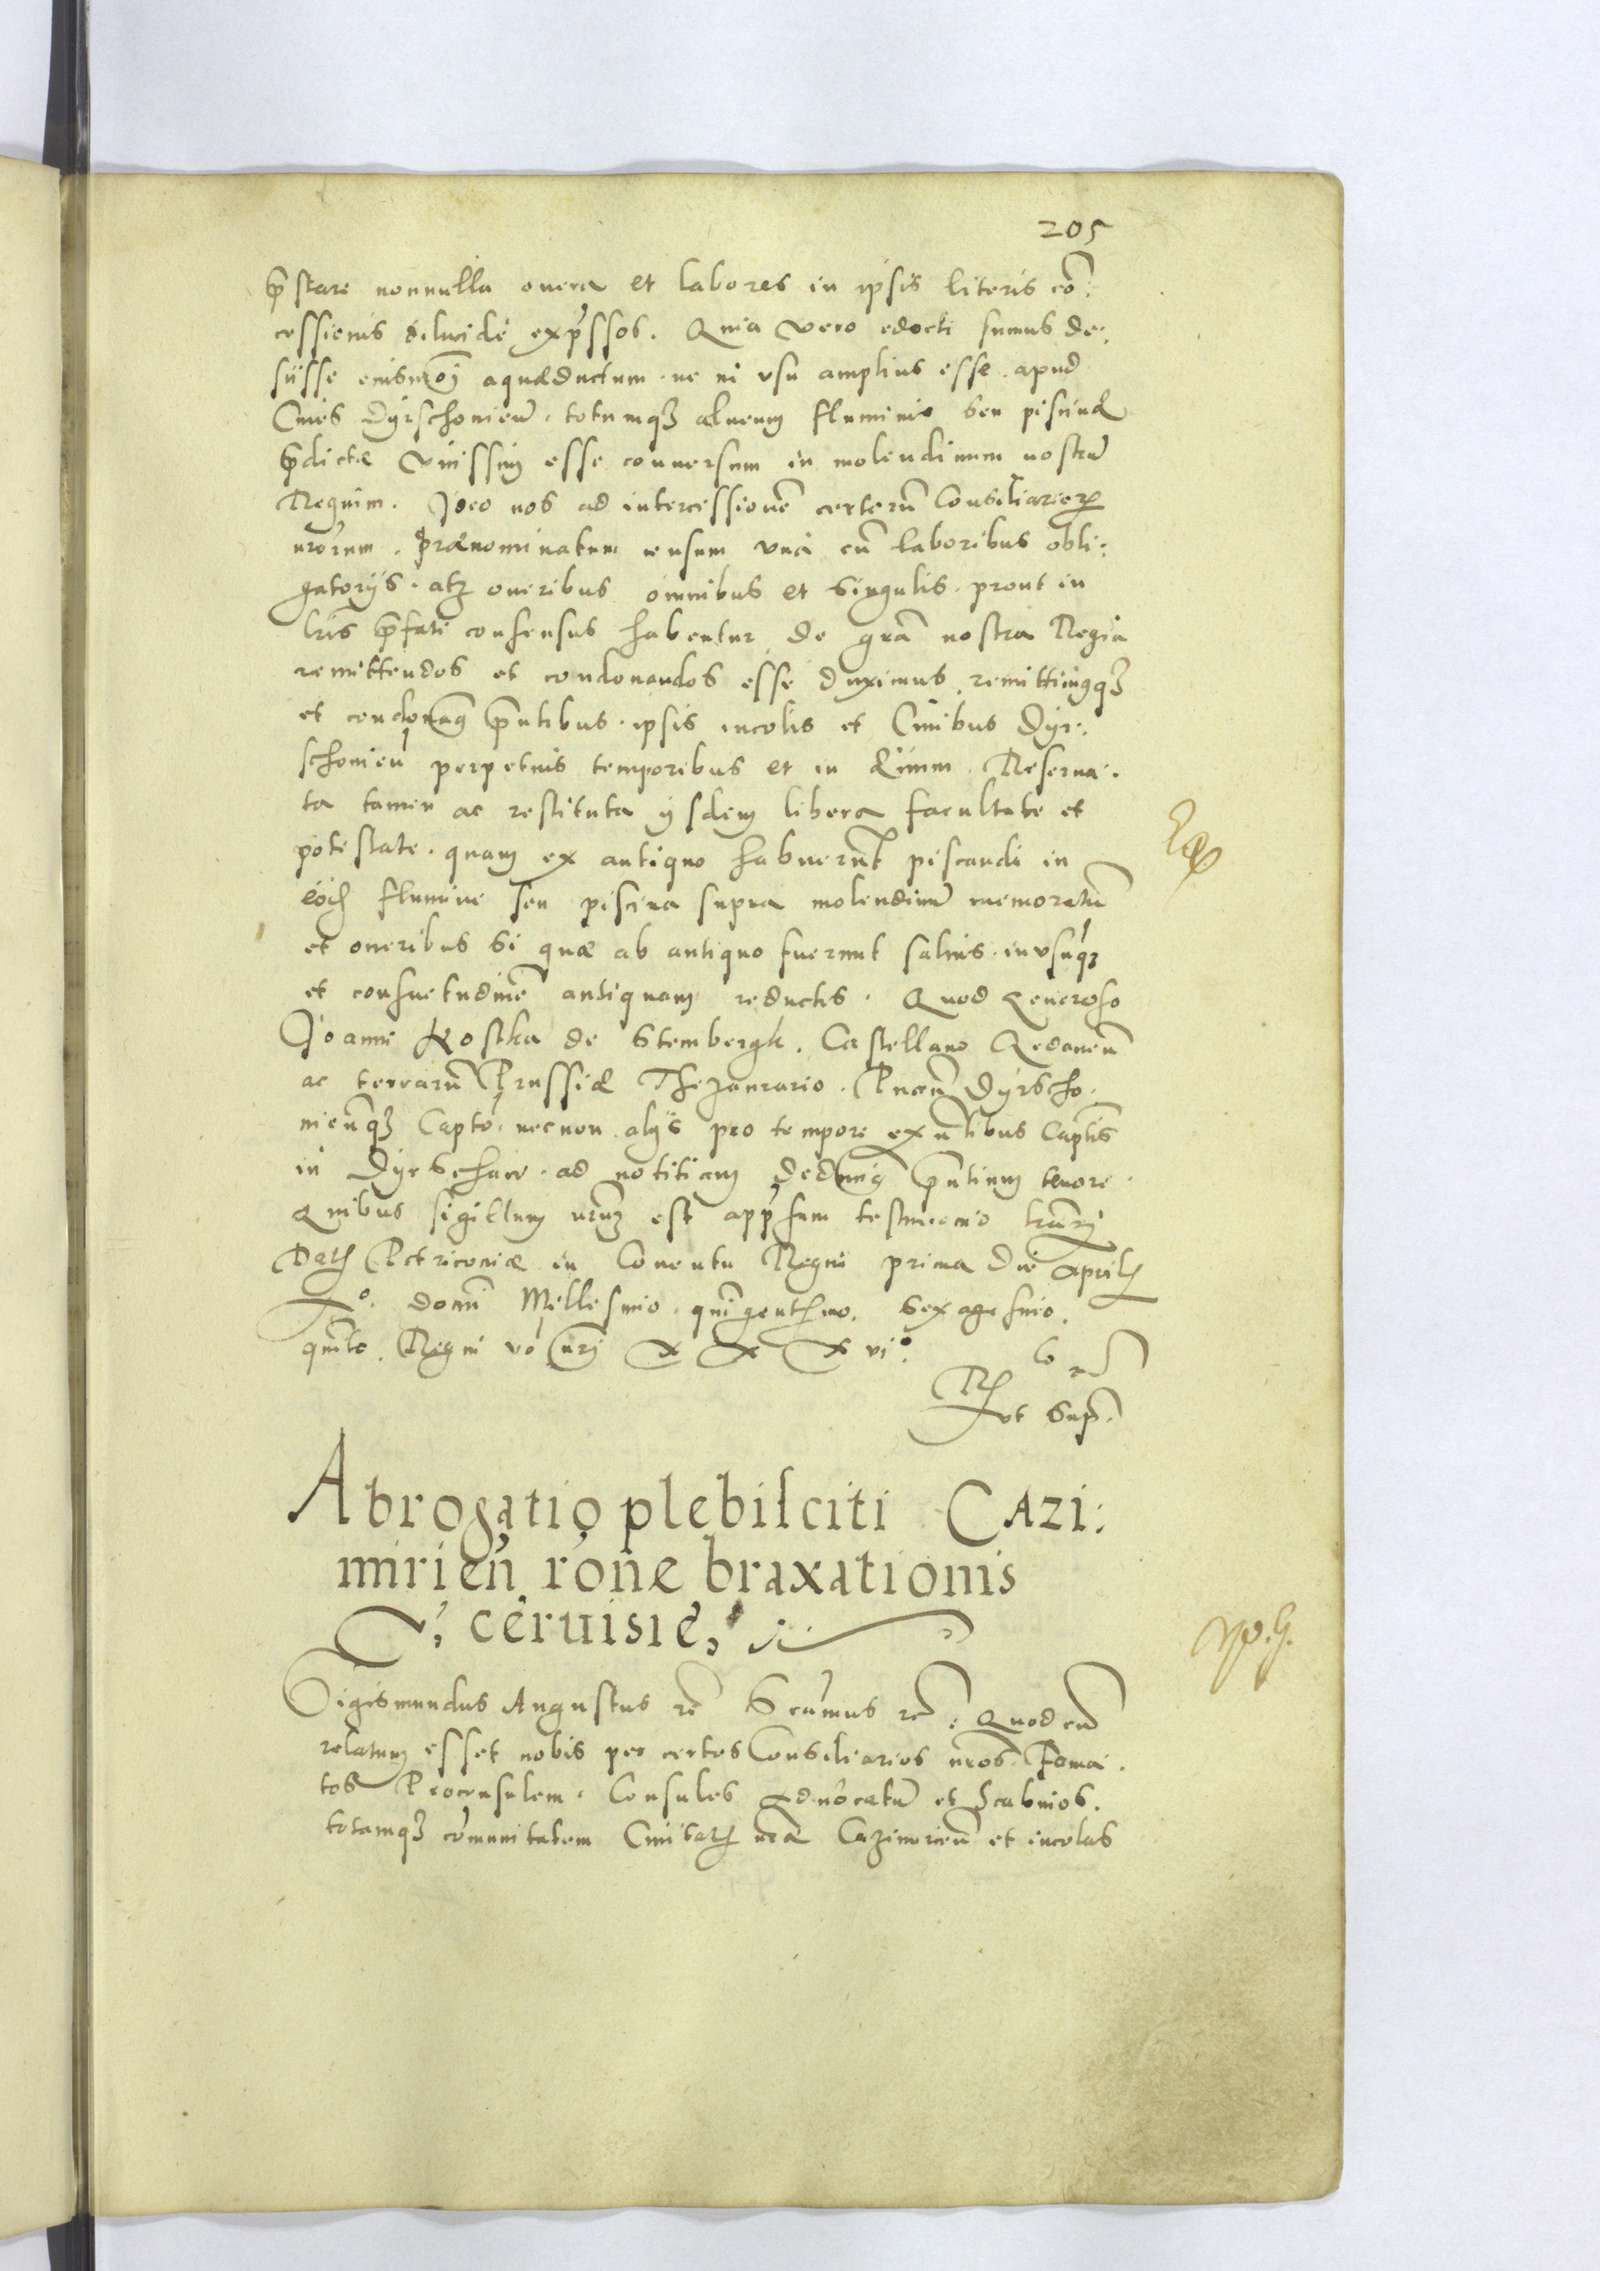 205
p̄stare nonnulla onera et labores in ipsis literis cō:
cessionis dilucide exp̄ssos. Quia vero edocti sumus de:
sijsse eiusmoi aquæductum. ne in vsu amplius esse apud
Ciues Dyrschouien̄. totumq3 alueum fluminis seu piscinæ
p̄dictæ vnissim esse conuersum in molendinum nostrū
Regium. Ideo nos ad intercessionē certorū Consiliarior
nrorum. prænominatum censum vna cū laboribus obli:
gatorijs. atq3 oneribus omnibus et singulis. prout in
lris p̄fati consensus habentur de grā nostra Regia
remittendos et condonandos esse duximus. remittimusq3
et condonamus p̄ntibus. ipsis incolis et Ciuibus Dyr:
schouien̄ perpetuis temporibus et in æuum. Reserua:
ta tamen ac restituta ijsdem libera facultate et
potestate. quam ex antiquo habuerūt piscandi in
eodem flumine seu piscina supra molendinū memoratū
et oneribus si quæ ab antiquo fuerunt saluis. in vsuq3
et consuetudinē antiquam reductis. Quod Generoso
Joanni Kostka de Stembergk. Castellano Gedanen̄
ac terrarū Prussiæ Thezaurario. Pucen̄ Dyrscho:
uien̄q3 Capto. necnon alijs pro tempore exn̄tibus Captis
in Dyrschaw. ad notitiam deducimus p̄ntium tenore.
Quibus sigillum nrum est app̄sum testimonio lrarum
Datum Petricouiæ in Conuentu Regni prima die Aprilis
Ao. domi Millesimo. quingentesimo. sexagesimo.
quinto. Regni vo nri xxxvio.
Rtio
vt supᷓ.
Abrogatio plebisciti Cazi:
mirien̄ rōne braxationis
ceruisie.
Sigismundus Augustus rē Scimus rē. Quod cū
relatum esset nobis per certos Consiliarios nros. Fama:
tos Proconsulem. Consules Aduocatū et Scabinos.
totamq3 cōmunitatem Ciuitatis nræ Cazimirien̄ et incolas